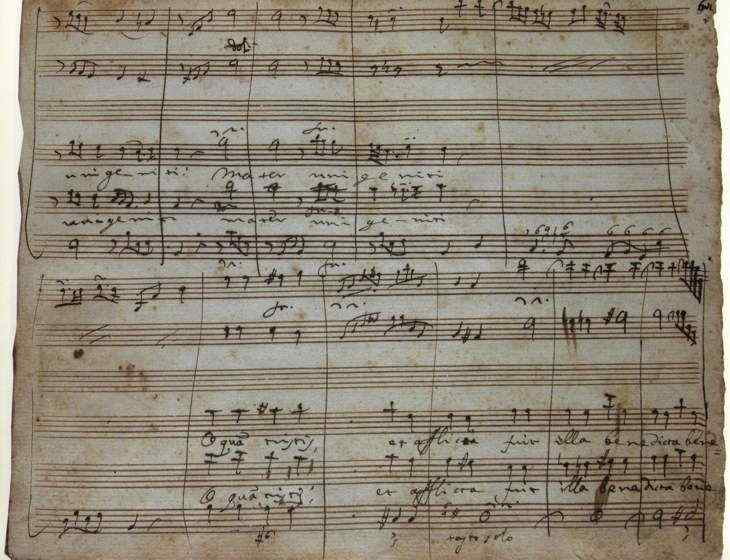 dol.
unigeniti: Mater uni ge niti
unigeniti mater uni ge niti
6 6 6 6
O quã tristis, et afflicta fuit illa benedicta bene=
O quã tristis, et afflicta fuit illa benedicta bene
tasto solo